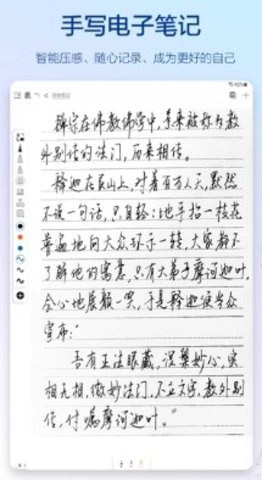 手写电子笔记
智能压感、随心记录、成为更好的自己
禅宗在佛教佛学中,素来被称为教
外别传的法门,历来相传。
释迦在灵山上,对着百万人天,默然
不说一句话,只自轻轻地手拈一枝花
普遍地向大众环示一转,大家都不
了解他的寓意,只有大弟子摩诃迦叶,
会心地展颜一笑,于是释迦便当众
宣布:
吾有正法眼藏,涅槃妙心,实
相无相,微妙法门,不立文字,教外别
传,付嘱摩诃迦叶。"